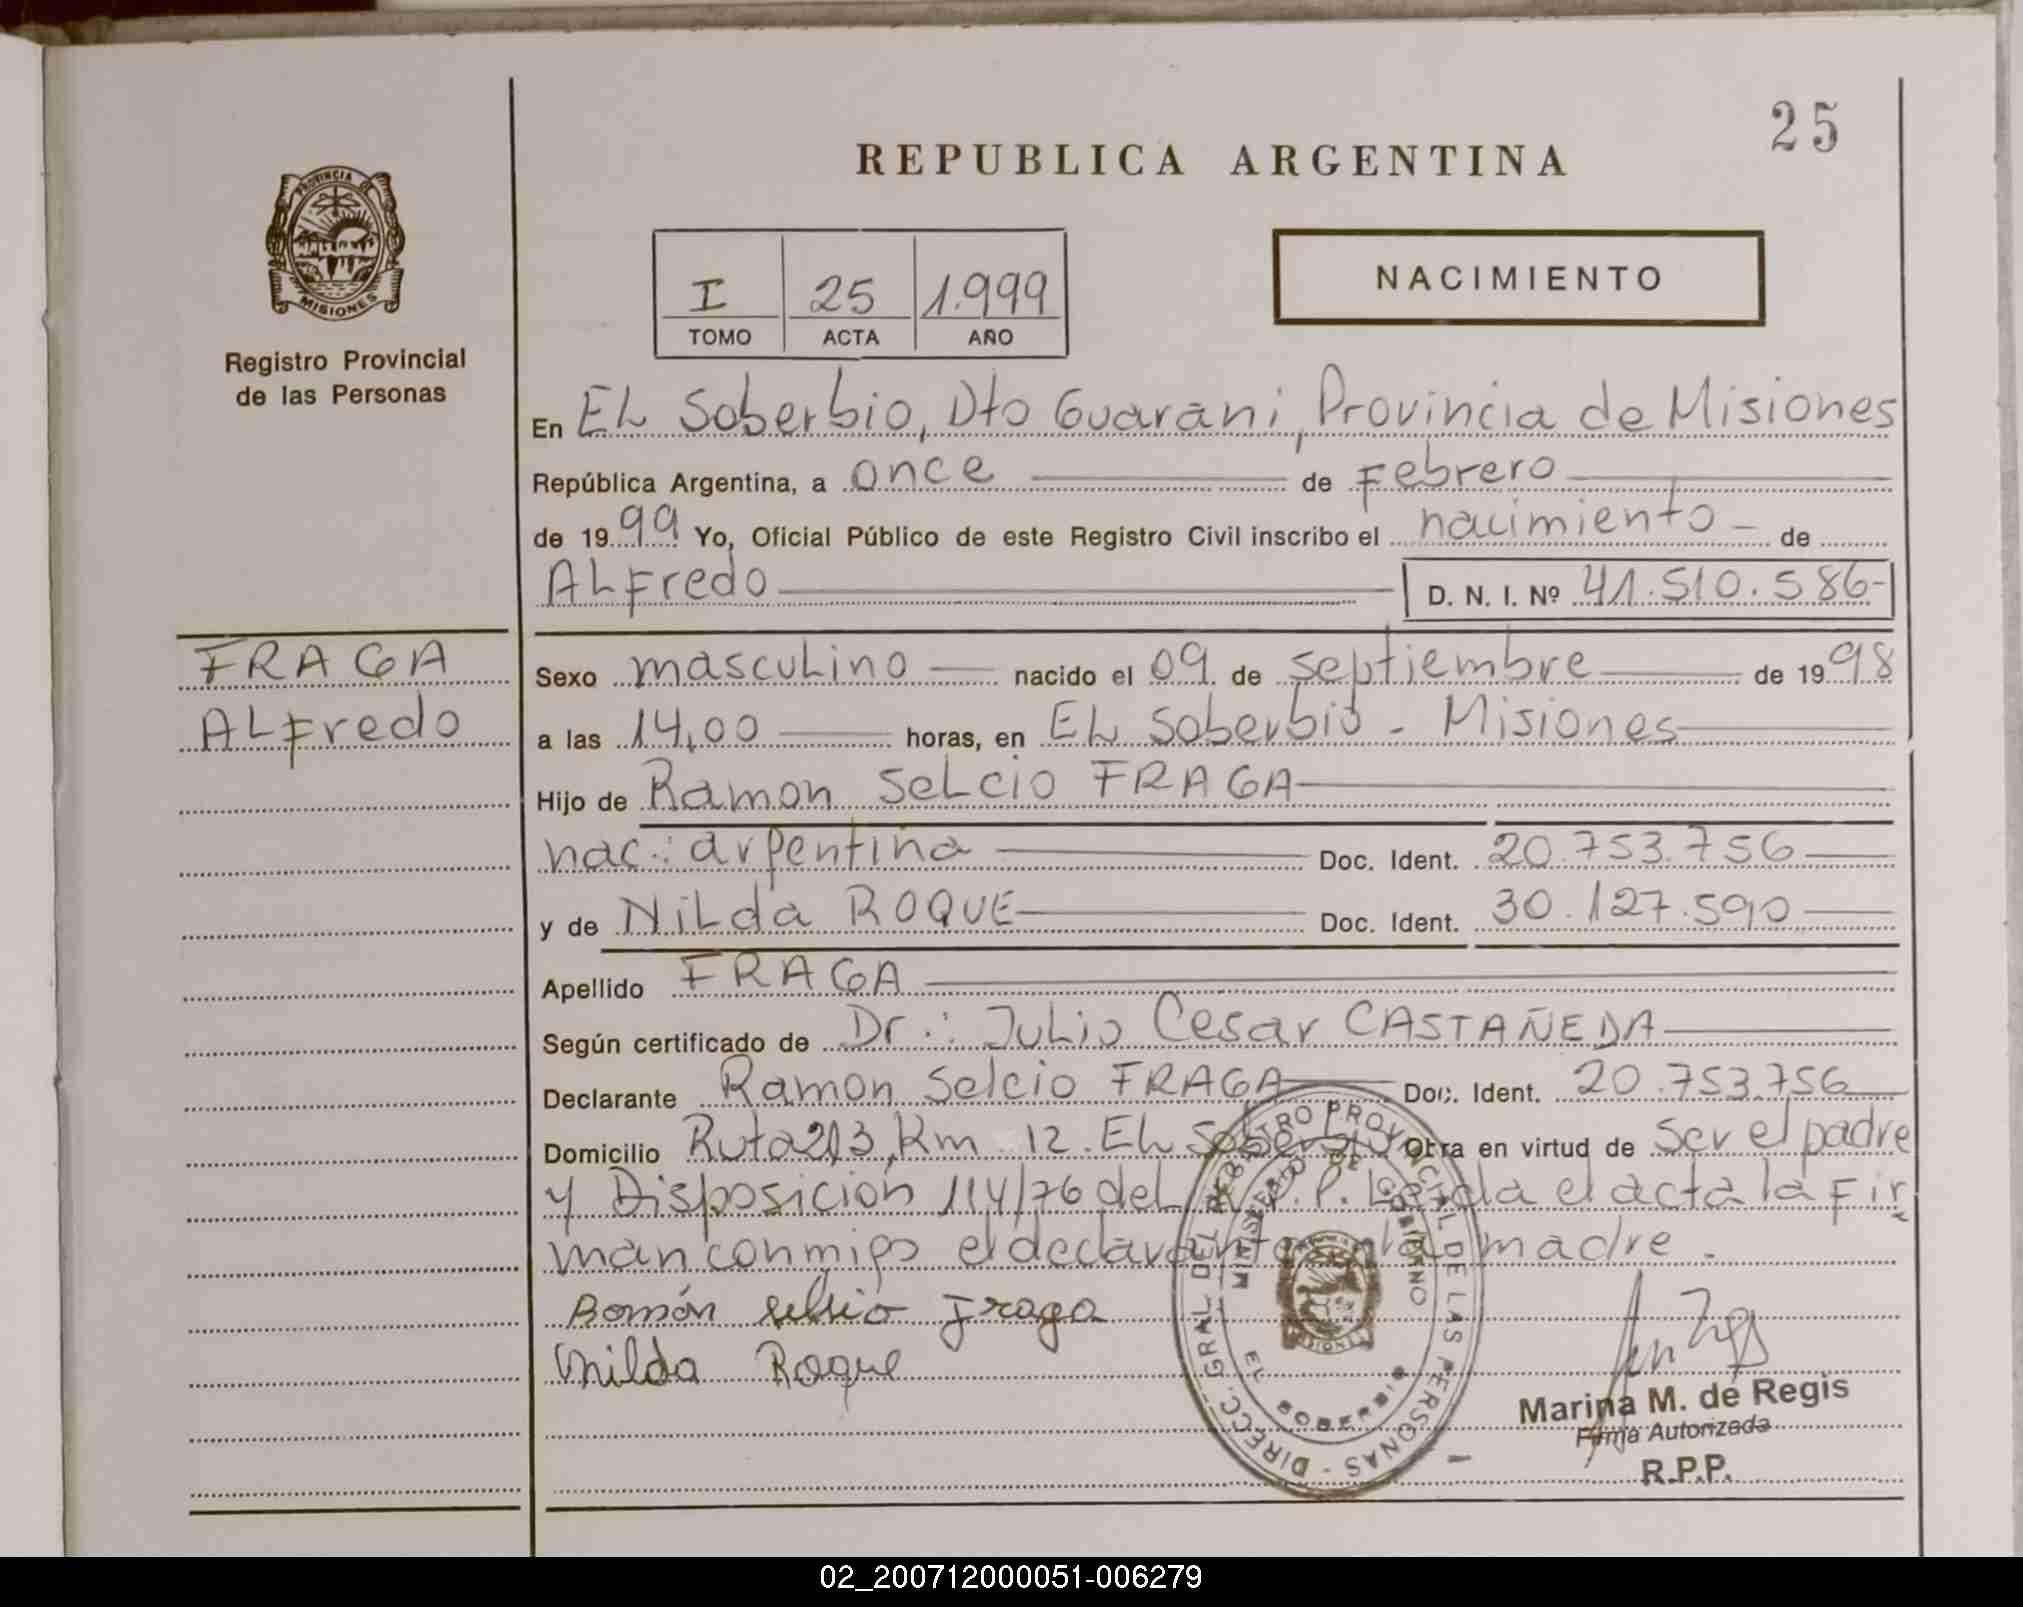 25
REPUBLICA ARGENTINA
PROVINCIA DE
MISIONES
Registro Provincial
de las Personas
I 25 1.999
TOMO ACTA AÑO
NACIMIENTO
En EL Soberbio, Dto Guarani, Provincia de Misiones
República Argentina, a once de Febrero
de 1999 Yo, Oficial Público de este Registro Civil inscribo el nacimiento de
ALFredo D. N. I. Nº 41.510.586-
FRAGA
ALFredo
Sexo mascuLino nacido el 09 de septiembre de 1998
a las 14,00 horas, en EL Soberbio - Misiones
Hijo de Ramon SeLcio FRAGA
nac.: argentina Doc. Ident. 20.753.756
y de NiLda ROQUE Doc. Ident. 30.127.590
Apellido FRAGA
Según certificado de Dr.: JuLio Cesar CASTAÑEDA
Declarante Ramon Selcio FRAGA Doc. Ident. 20.753.756
Domicilio Ruta 213, Km 12. EL Soberbio Obra en virtud de ser el padre
y Disposición 114/76 del R.P.P. Leida el acta la Fir
man conmigo el declarante y la madre.
Román Selsio Fraga
Nilda Roque
DIRECC. GRAL DEL REGISTRO PROVINCIAL DE LAS PERSONAS -
MINISTERIO DE GOBIERNO
EL SOBERBIO
MISIONES
Marina M. de Regis
Firma Autorizada
R.P.P.
02_200712000051-006279